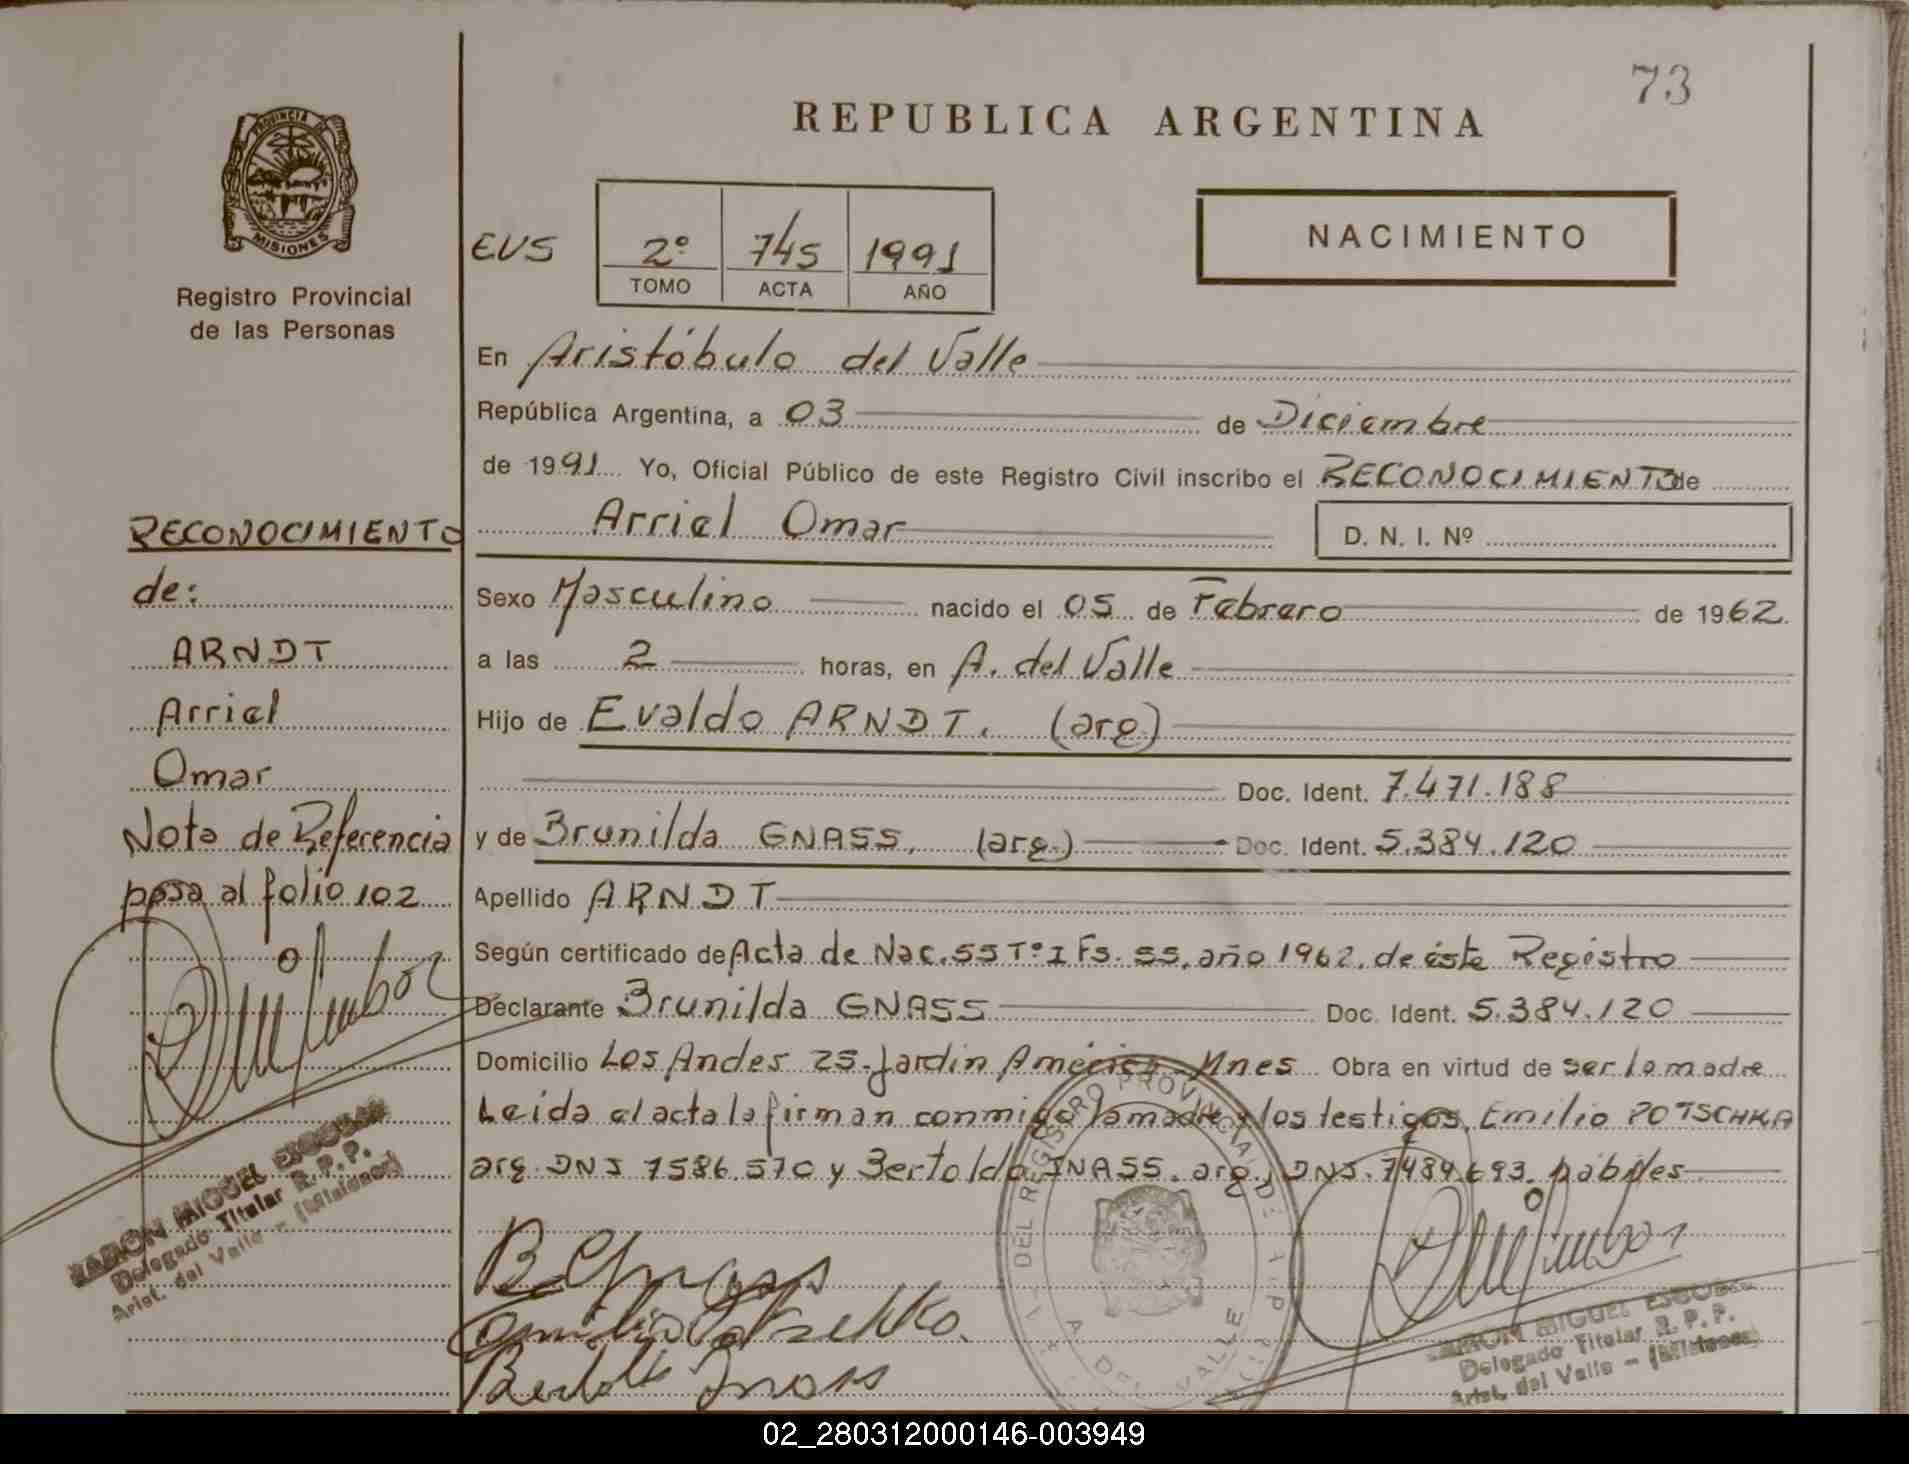 73
REPUBLICA ARGENTINA
PROVINCIA DE
MISIONES
Registro Provincial
de las Personas
EVS
2º 745 1991
TOMO ACTA AÑO
NACIMIENTO
En Aristóbulo del Valle
República Argentina, a 03 de Diciembre
de 1991 Yo, Oficial Público de este Registro Civil inscribo el RECONOCIMIENTO de
Arriel Omar D. N. I. Nº
Sexo Masculino nacido el 05 de Febrero de 1962.
a las 2 horas, en A. del Valle
Hijo de Evaldo ARNDT. (arg)
Doc. Ident. 7.471.188
y de Brunilda GNASS. (arg.) Doc. Ident. 5.384.120
Apellido ARNDT
Según certificado de Acta de Nac. 55 Tº I Fs. 55. año 1962. de éste Registro
Declarante Brunilda GNASS Doc. Ident. 5.384.120
Domicilio Los Andes 25-Jardin América-Mnes Obra en virtud de ser la madre
Leída el acta la firman conmigo la madre y los testigos, Emilio POTSCHKA
arg. DNI 7586.570 y Bertoldo INASS. arg., DNI. 7484.693. hábiles
RECONOCIMIENTO
de:
ARNDT
Arriel
Omar
Nota de Referencia
pasa al folio 102
RAMON MIGUEL ESCOBAR
Delegado Titular R.P.P.
Arist. del Valle - (Misiones)
B Gnass
Emilio Potschka.
Bertoldo Inass
DEL REGISTRO PROVINCIAL DE
A. DEL VALLE
RAMON MIGUEL ESCOBAR
Delegado Titular R.P.P.
Arist. del Valle - (Misiones)
02_280312000146-003949